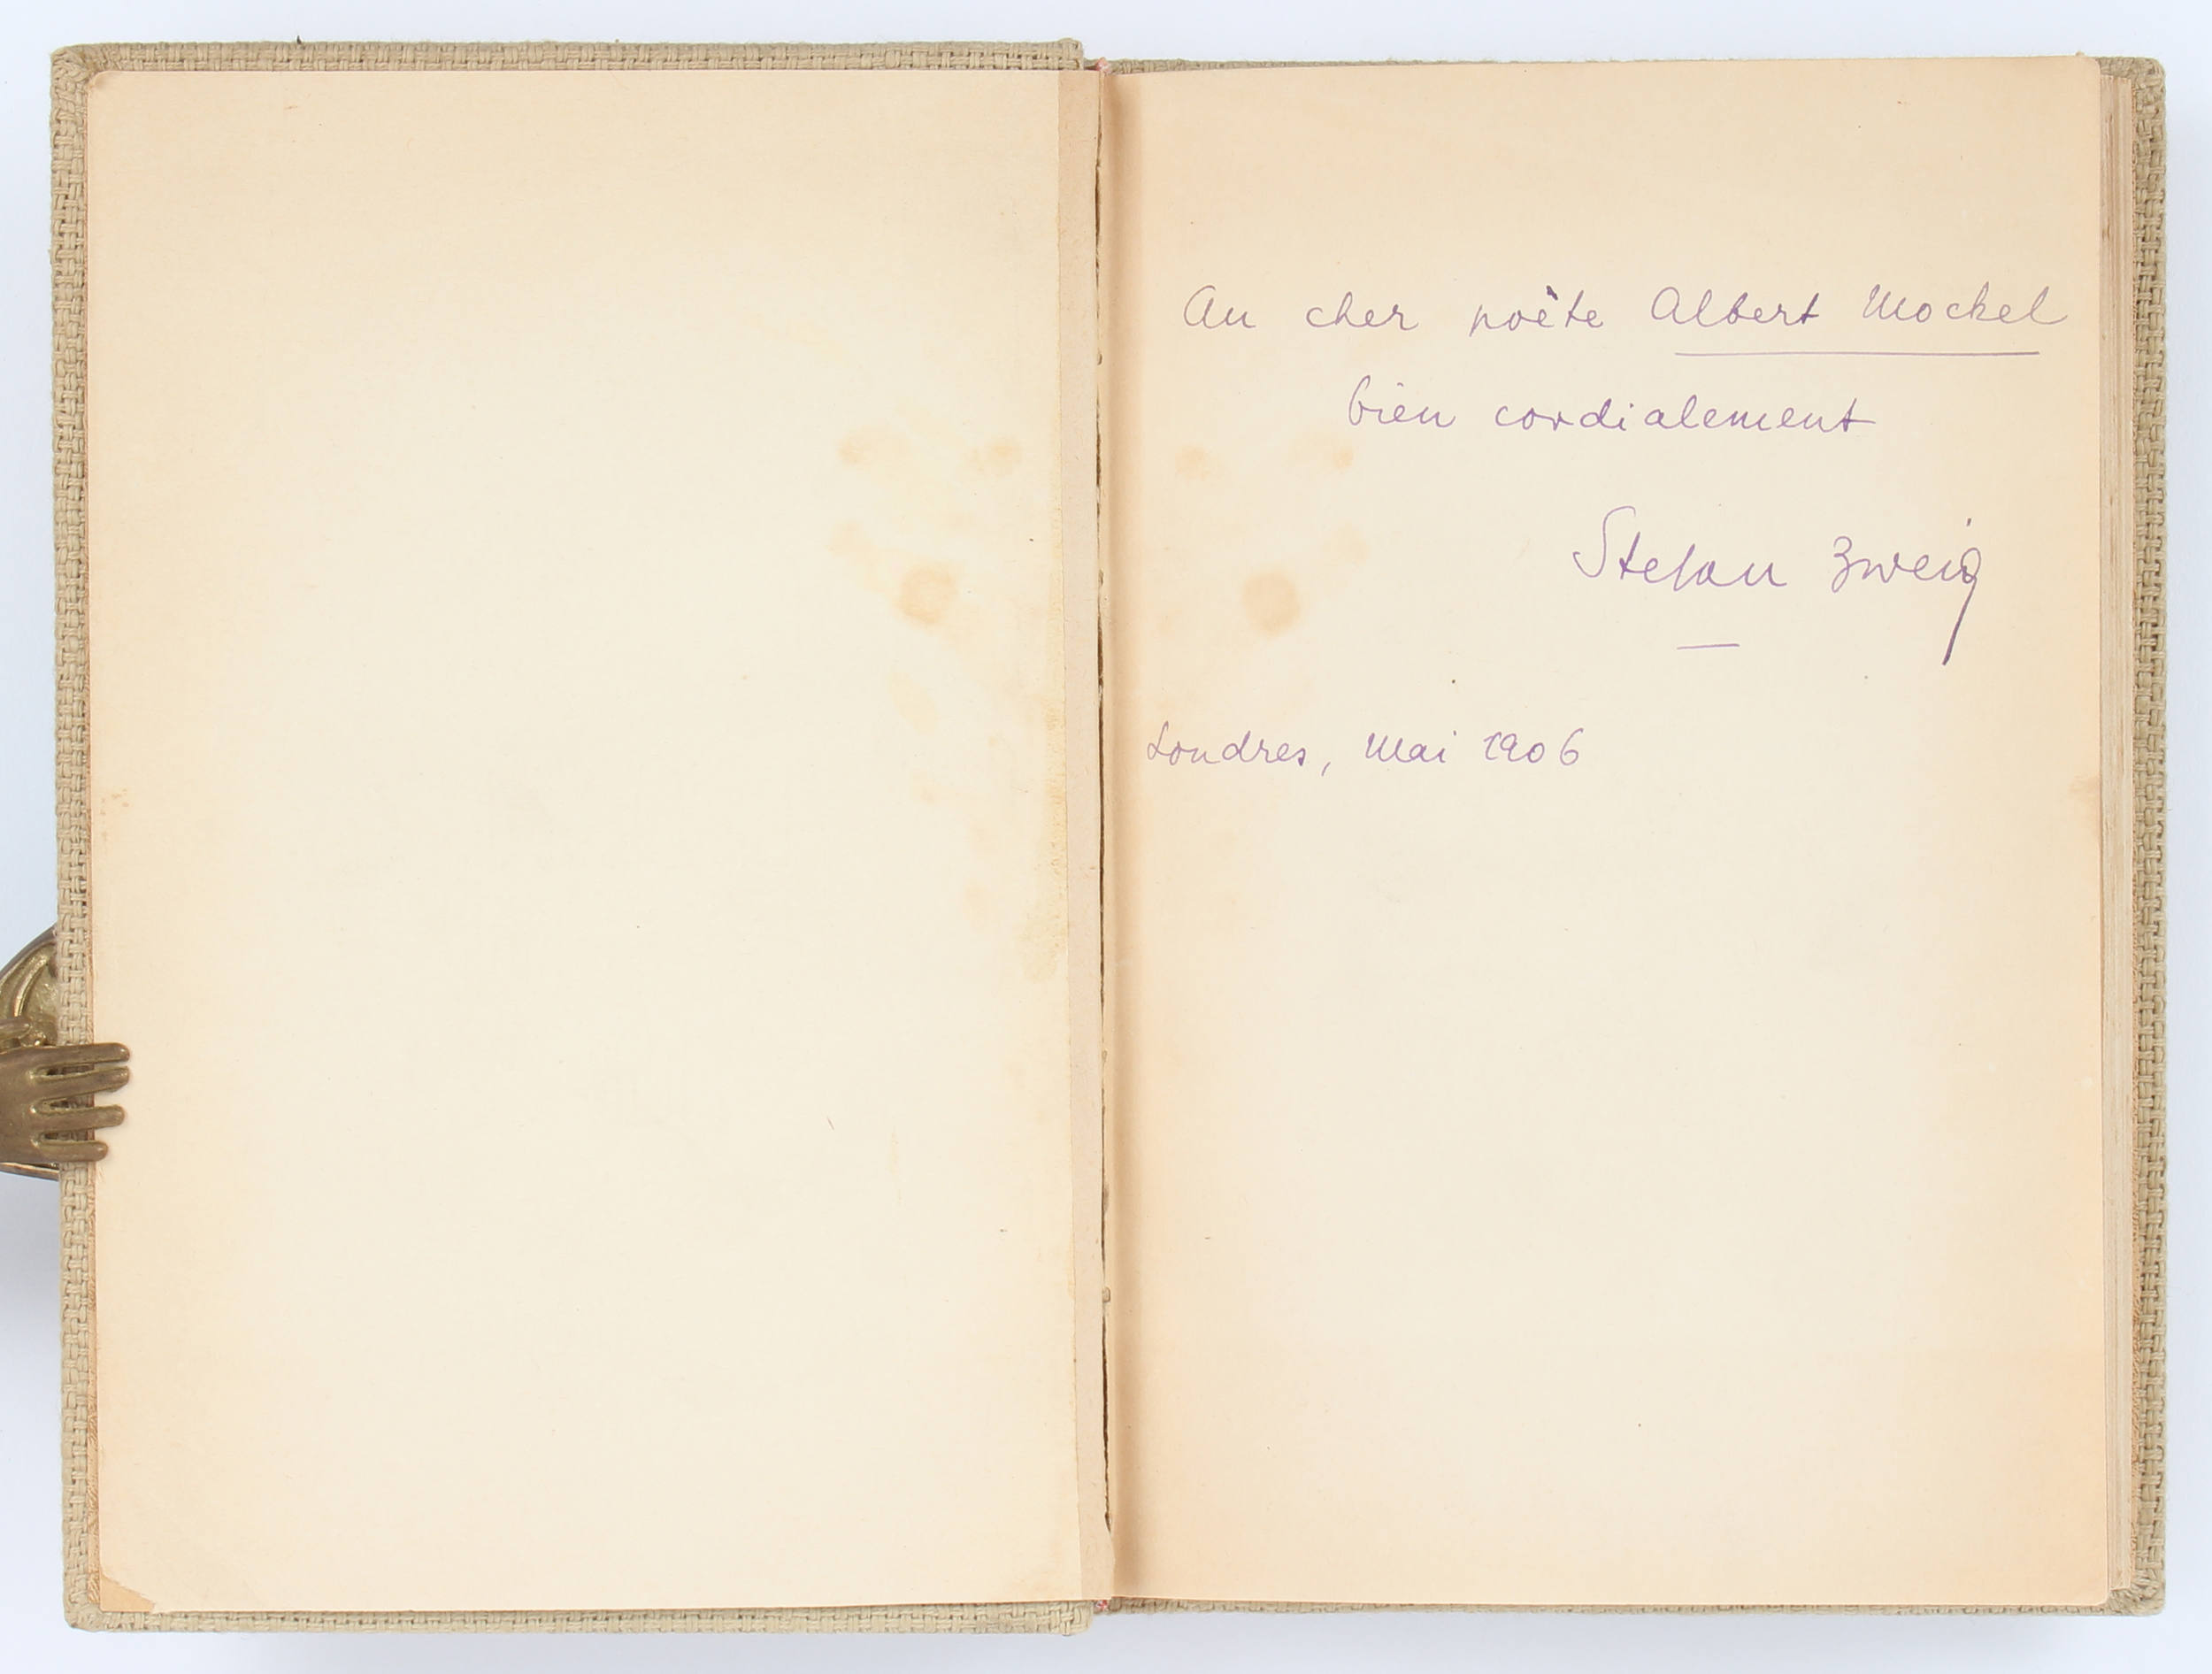 Au cher poète Albert Mockel
bien cordialement
Stefan Zweig
Londres, Mai 1906